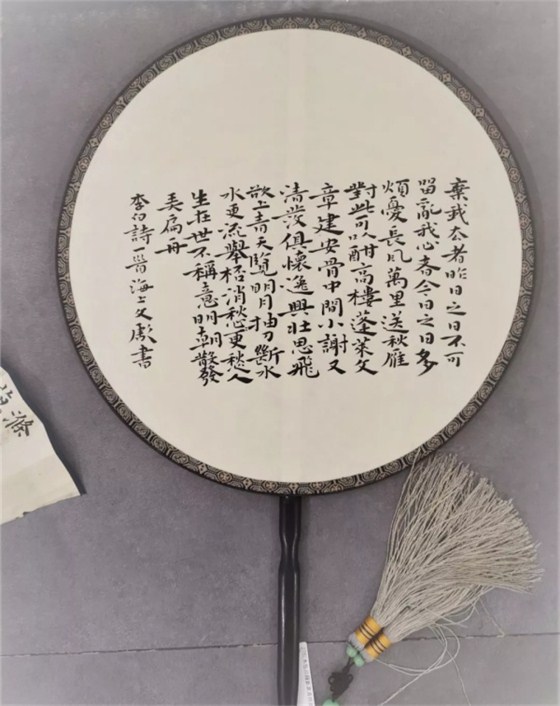 棄我去者昨日之日不可
留亂我心者今日之日多
煩憂長風萬里送秋雁
對此可以酣高樓蓬萊文
章建安骨中間小謝又
清發俱懷逸興壯思飛
欲上青天覽明月抽刀斷水
水更流舉杯消愁更愁人
生在世不稱意明朝散發
弄扁舟
李白詩一首海上文獻書